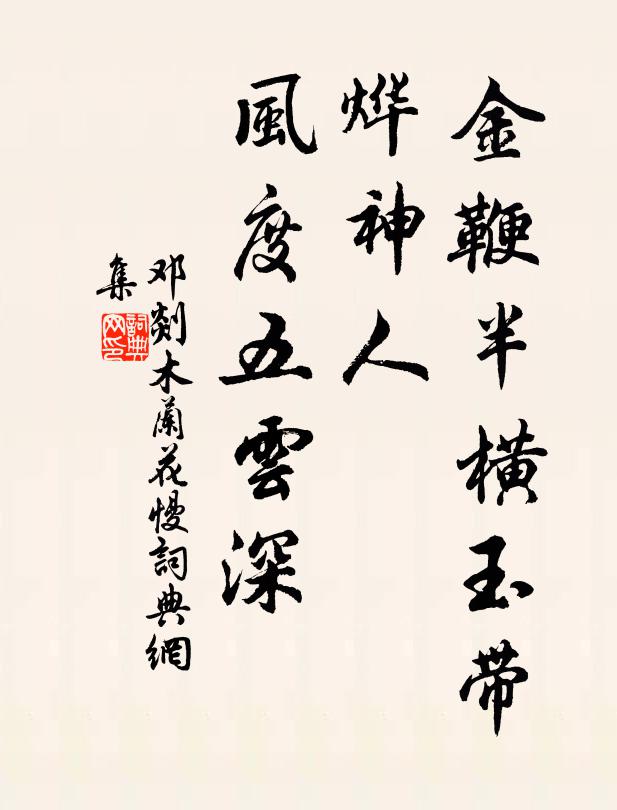 金鞭半橫玉带
烨神人
風度五雲深
邓剡木蘭花慢詞典網
集
詞典
网印